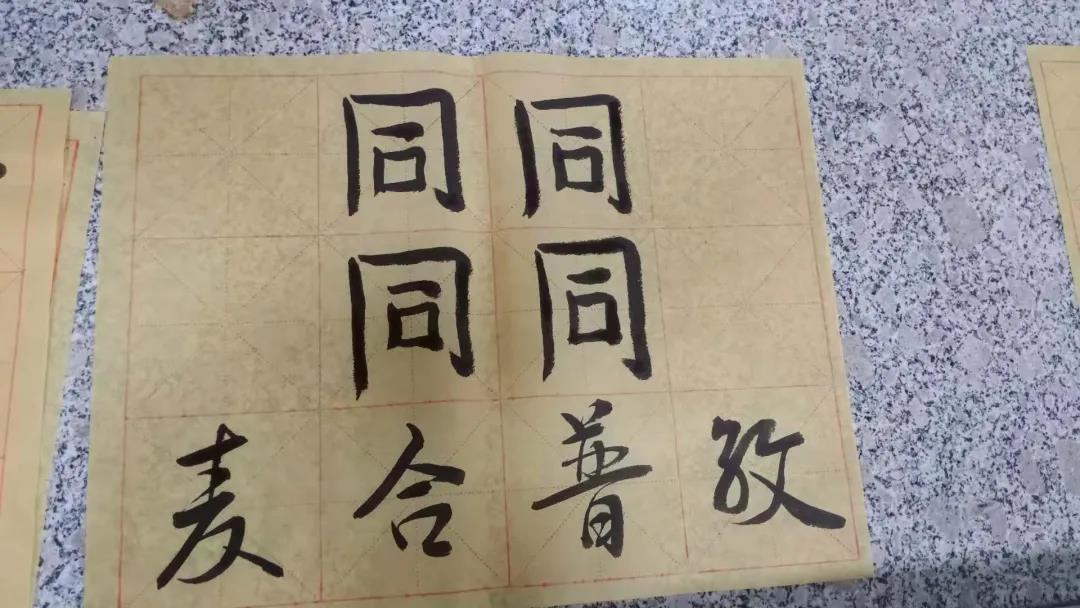 同同
同同
麦合普